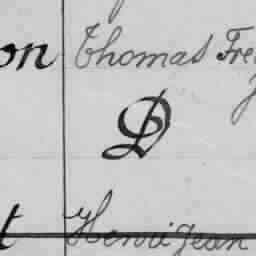 on Thomas Fre
D
t Henri Jean